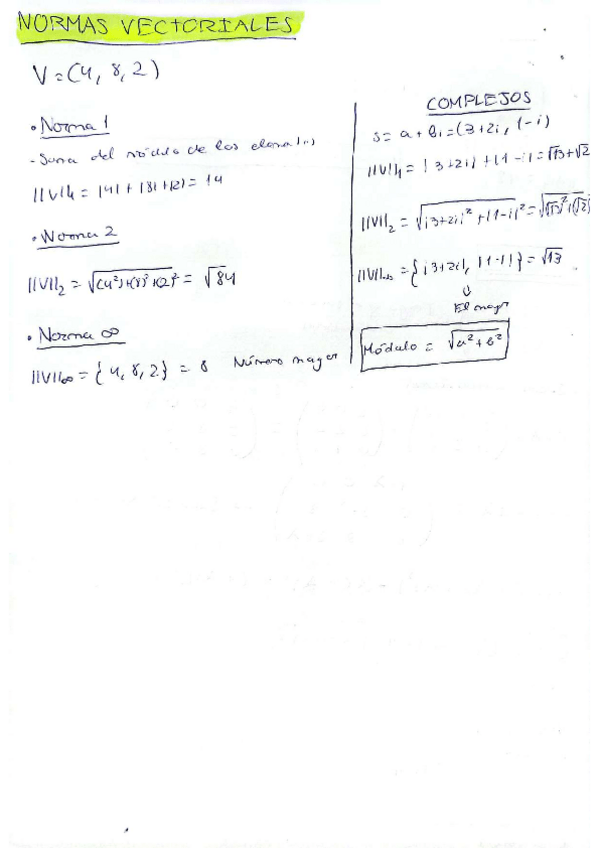 NORMAS VECTORIALES
V=(4, 8, 2)
• Norma 1
- Suma del módulo de los
||V||₁ = |4| + |8| + |2| = 14
• Norma 2
||V||₂ = √(4²)+(8)²+(2)² = √84
• Norma ∞
||V||∞ = {4, 8, 2} = 8 Número mayor
COMPLEJOS
s = a + bi = (3+2i, 1-i)
||V||₁ = |3+2i| + |1-i| = √13 + √2
||V||₂ = √|3+2i|² + |1-i|² = √(√13)²+(√2)²
||V||∞ = {|3+2i|, |1-i|} = √13
↓
El mayor
Módulo = √a²+b²